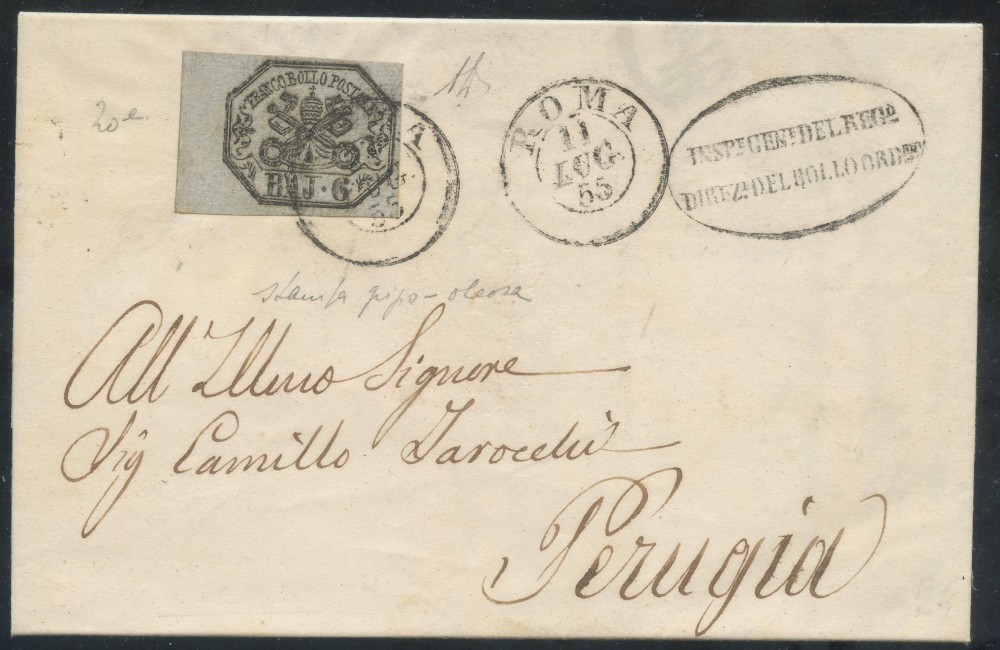 FRANCO BOLLO POSTALE
BAJ·6
ROMA
11
LUG.
55
INSP.ᵉ GEN.ˡ DEL REG.º
DIREZ.ᵉ DEL BOLLO ORD.ʳⁱᵒ
20 e
stampa grigio-oleosa
All Illmo Signore
Sig Camillo
Perugia